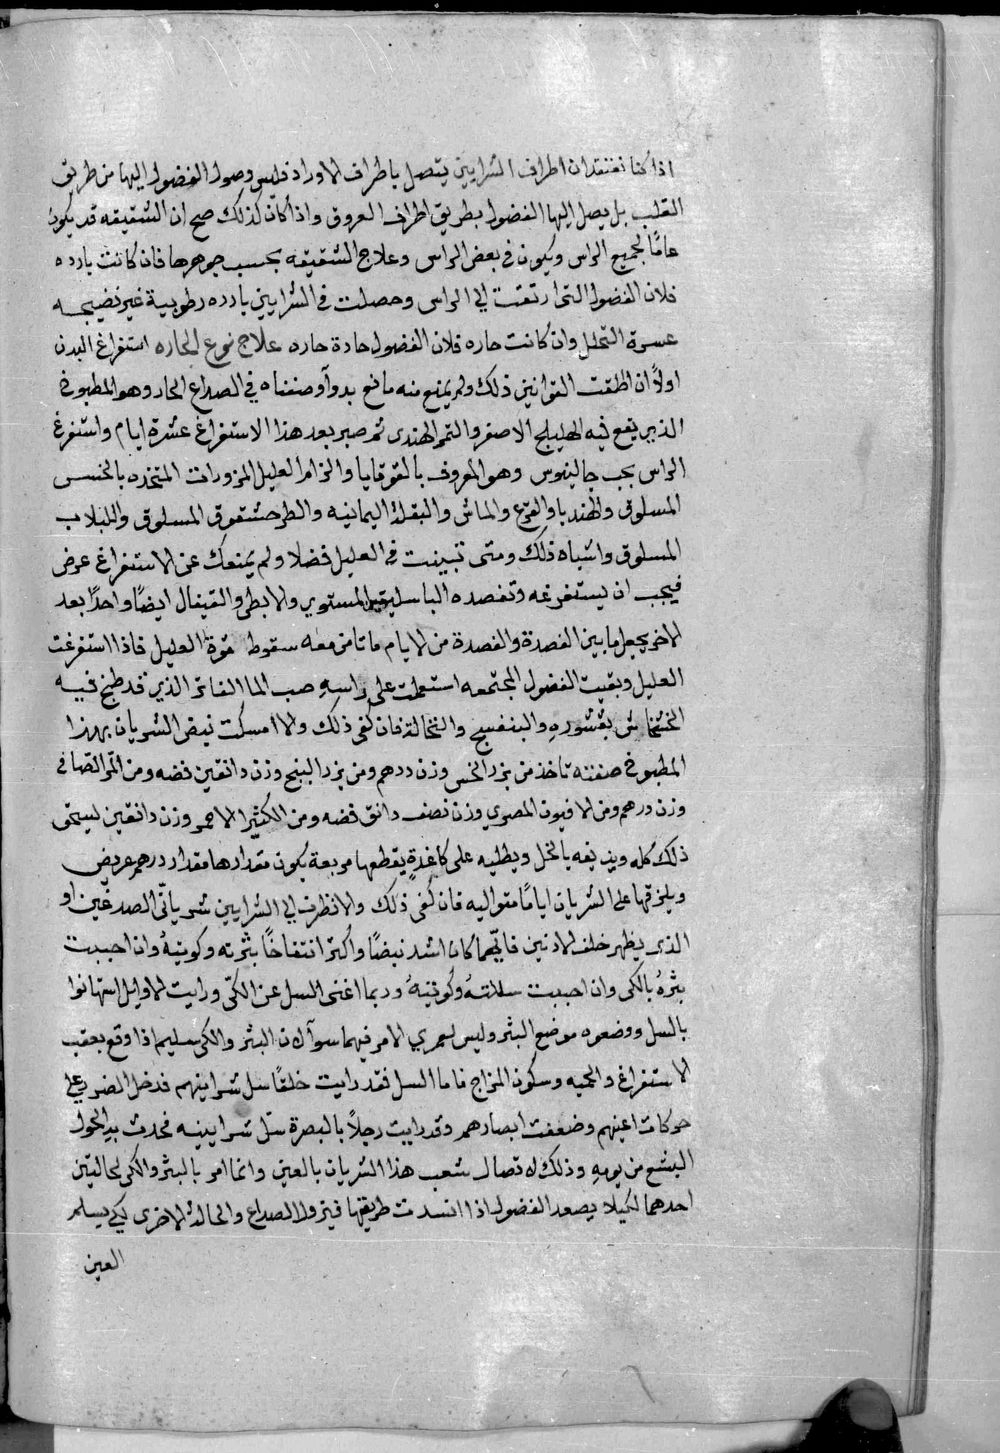 اذا كنا نعتقد ان اطراف الشرايين يتصل باطراف الاوراد فليس وصول الفضول اليها من طريق
القلب بل يصل اليها الفضول بطريق اطراف العروق واذا كان كذلك صح ان الشقيقه قد يكون
عامًا لجميع الراس ويكون في بعض الراس وعلاج الشقيقه بحسب جوهرها فان كانت بارده
فلان الفضول التي ارتقت الي الراس وحصلت في الشرايين بارده رطوبية غير نضيجه
عسرة التحلل وان كانت حاره فلان الفضول حادة حاره علاج نوع الحاره استفراغ البدن
اولاً ان اطلقت القوانين ذلك ولم يمنع منه مانع بدوآ وصفناه في الصداع الحار وهو المطبوخ
الذي يقع فيه الهليلج الاصفر والتمر الهندى ثم صبر بعد هذا الاستفراغ عشرة ايام واستفرغ
الراس بحب جالينوس وهو المعروف بالقوقايا والزام العليل المزورات المتخذه بالخس
المسلوق والهندبا والقرع والماش والبقلة اليمانيه والطرحشقوق المسلوق واللبلاب
المسلوق واشباه ذلك ومتى تبينت في العليل فضلا ولم يمنعك عن الاستفراغ عرض
فيجب ان يستفرغه وتفصده الباسليقين المستوي والابطى والقيفال ايضًا واحدًا بعد
الاخر يجعل ما بين الفصدة والفصدة من الايام ما تامن معه سقوط قوة العليل فاذا استفرغت
العليل وبقيت الفضول المجتمعه استعملت على راسه صب الما الفاتر الذي قد طبخ فيه
الخشخاش بقشوره والبنفسج والنخالة فان كفى ذلك والا امسكت نبض الشريان بهذا
المطبوخ صفته تاخذ من بزر الخس وزن درهم ومن بزر البنج وزن دانقين فضه ومن المر الصافي
وزن درهم ومن الافيون المصري وزن نصف دانق فضه ومن الكثيرا الاحمر وزن دانقين ليسحق
ذلك كله ويديفه بالخل ويطليه على كاغدةٍ يقطعها مربعة يكون مقدارها مقدار درهم عريض
ويلزقها على الشريان ايامًا متواليه فان كفى ذلك والا نظرت الي الشرايين شرياني الصدغين او
الذى يظهر خلف الاذنين فايّهما كان اشد نبضًا واكثر انتفاخًا بثرته وكويتهُ وان احببت
بثرهُ بالكى وان احببت سللته وكويته وربما اغنى السل عن الكى ورايت الاوايل استهانوا
بالسل ووضعوه موضع البثر وليس لعمري الامر فيهما سوآ لان البثر والكى سليم اذا وقع بعقب
الاستفراغ والحميه وسكون المزاج فاما السل فقد رايت خلقًا سل شراينهم فدخل الضرر علي
حركات اعينهم وضعفت ابصارهم وقد رايت رجلاً بالبصرة سل شرايينه فحدث به الحول
البشع من يومهِ وذلك لاتصال شعب هذا الشريان بالعين وانما امر بالبثر والكى لحالتين
احدهما لكيلا يصعد الفضول اذا انسدت طريقها فيزول الصداع والحالة الاخرى لكي يسلم
العين